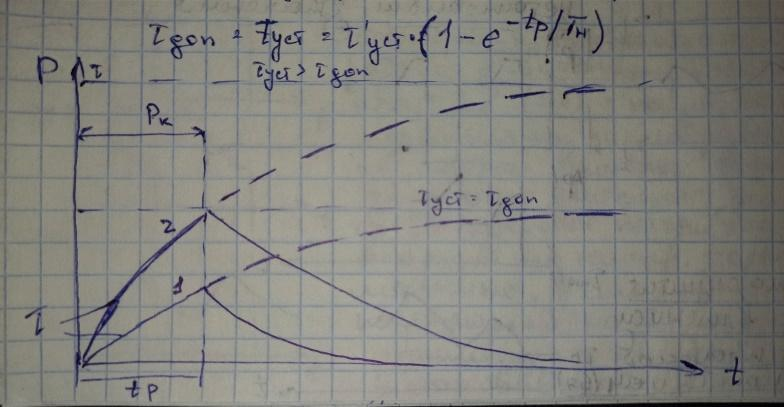 τдоп = τуст = τ'уст·(1 - e^-tр/Tн)
P τ
τ'уст > τдоп
Pк
τуст = τдоп
2
1
τ
tр
t